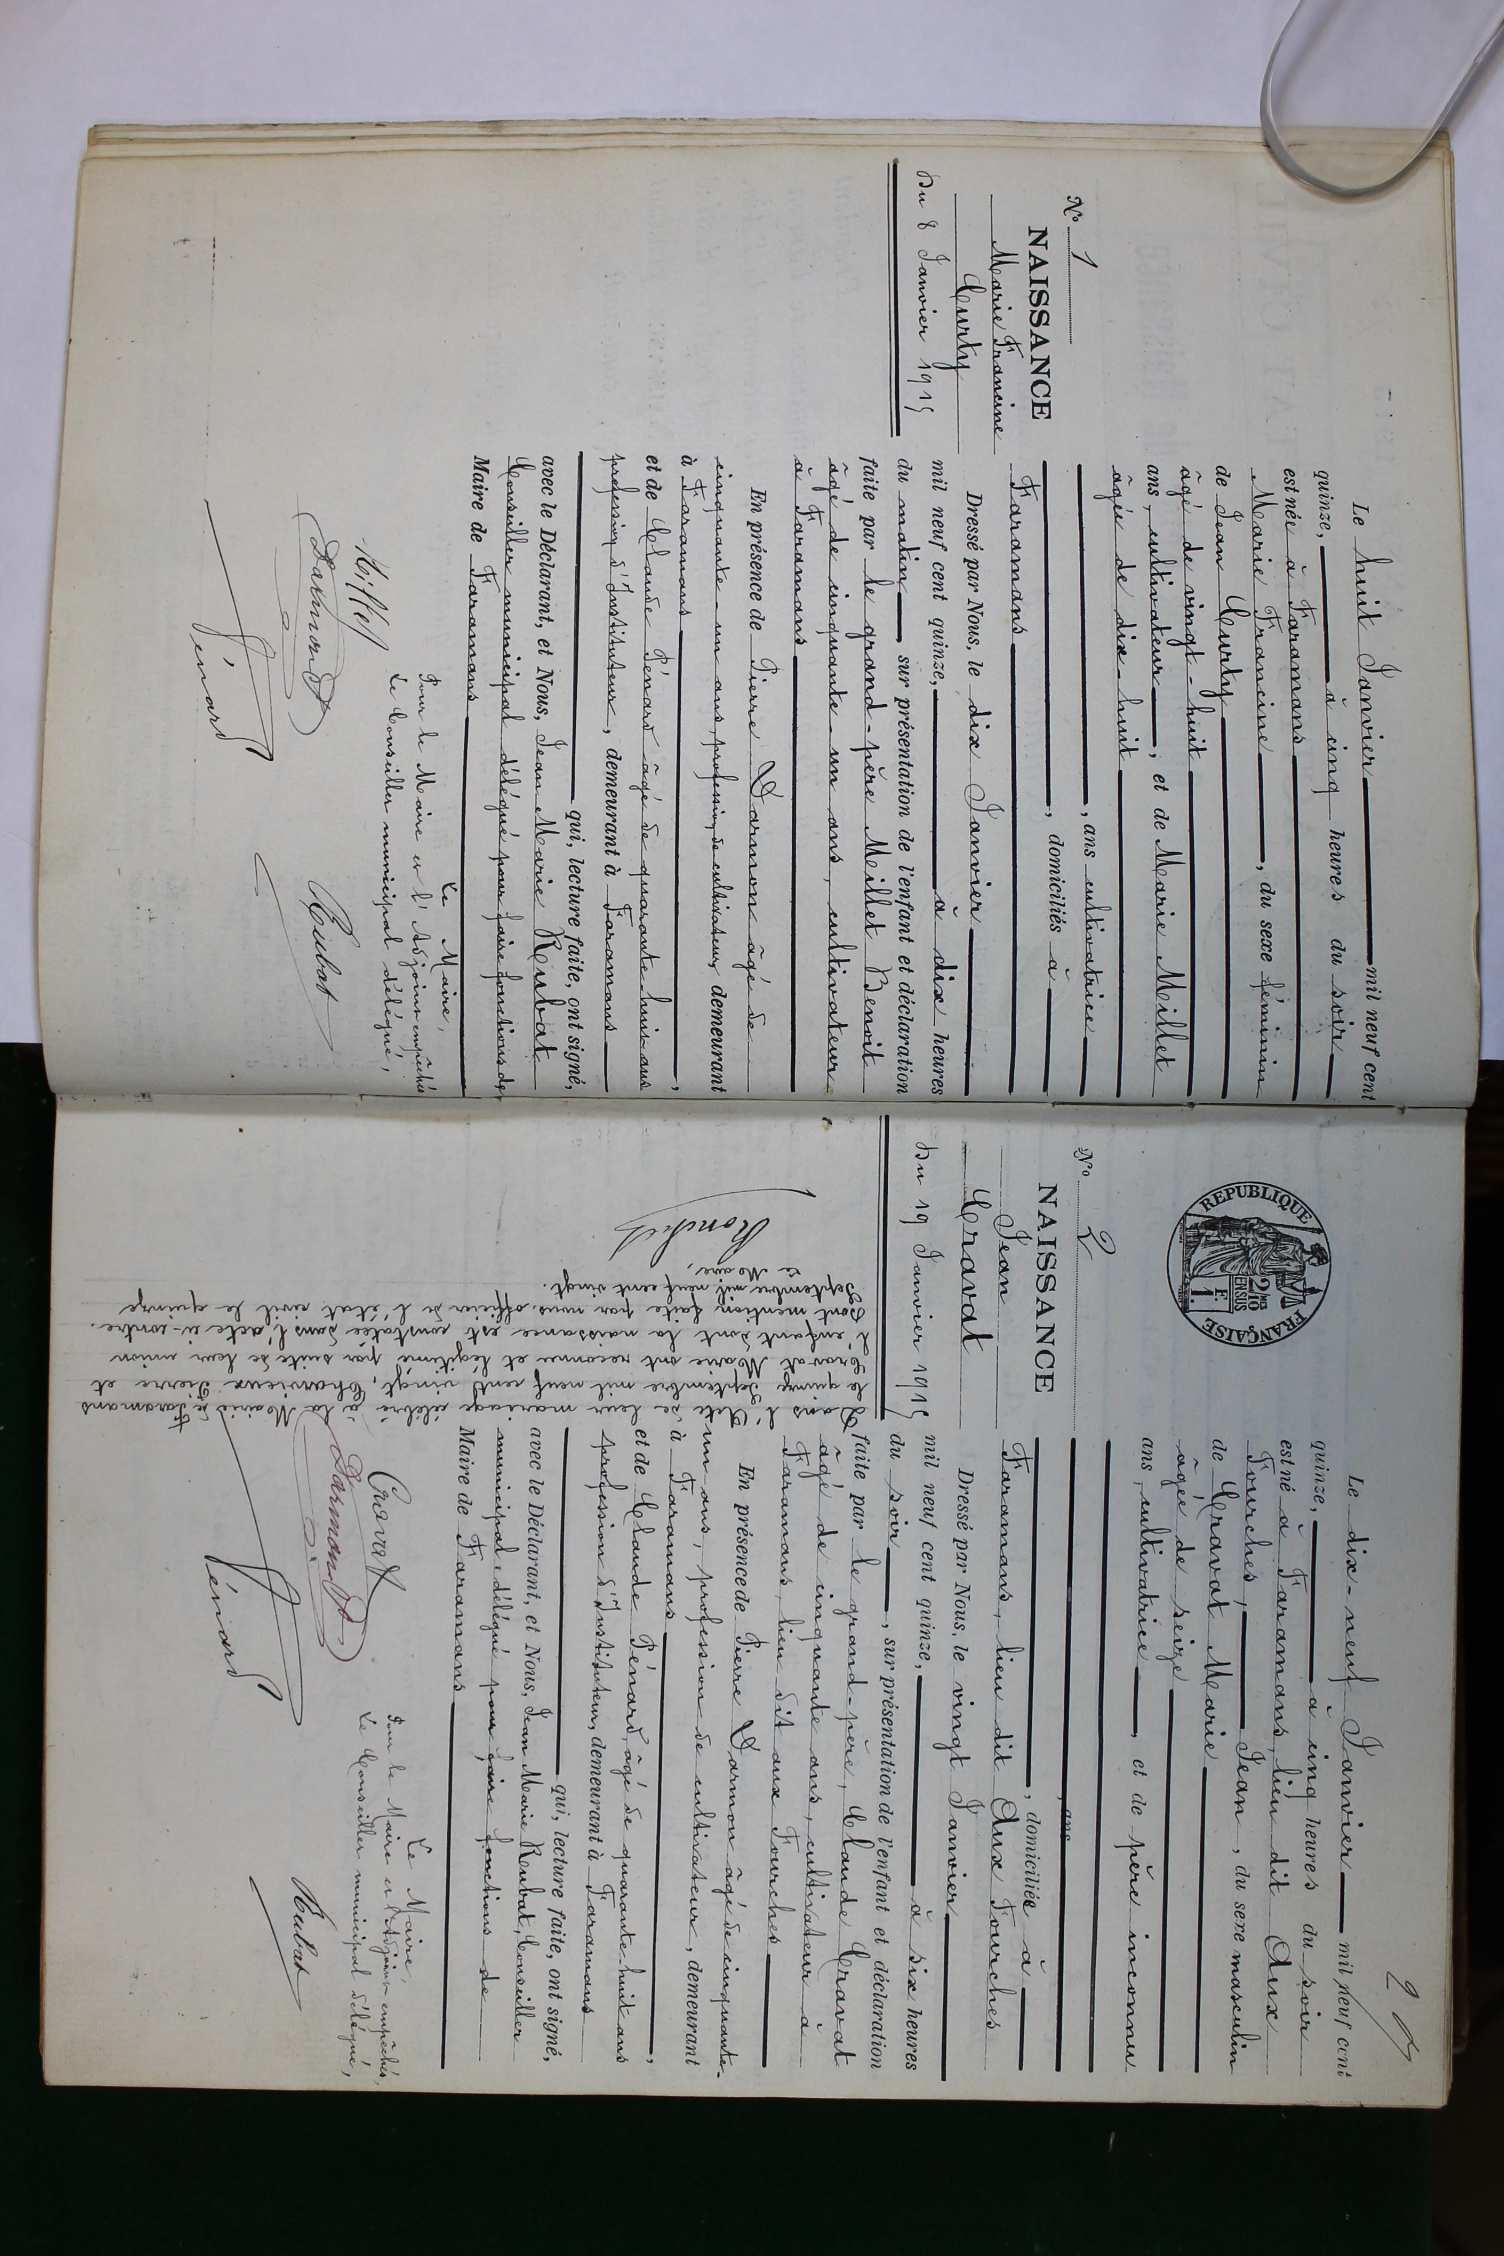 N° 1
NAISSANCE
Marie Francine
Curty
Du 8 Janvier 1915
Le huit Janvier mil neuf cent
quinze, à cinq heures du soir
est née à Faramans
Marie Francine, du sexe féminin
de Jean Curty
âgé de vingt-huit
ans, cultivateur, et de Marie Meillet
âgée de dix-huit
, ans cultivatrice
, domiciliés à
Faramans
Dressé par Nous, le dix Janvier
mil neuf cent quinze, à dix heures
du matin sur présentation de l'enfant et déclaration
faite par le grand-père Meillet Benoit
âgé de cinquante-un ans, cultivateur
à Faramans
En présence de Pierre Darmon âgé de
cinquante-un ans, profession de cultivateur, demeurant
à Faramans,
et de Claude Pénard âgé de quarante-huit ans
profession d'Instituteur, demeurant à Faramans
qui, lecture faite, ont signé,
avec le Déclarant, et Nous, Jean Marie Rubat
Conseiller municipal délégué pour faire fonctions de
Maire de Faramans
Le Maire,
Pour le Maire et l'Adjoint empêchés
Le Conseiller municipal délégué,
Darmon
Rubat
Pénard
2
N° 2
REPUBLIQUE FRANÇAISE
NAISSANCE
Jean
Cravat
Du 19 Janvier 1915
Le dix-neuf Janvier mil neuf cent
quinze, à cinq heures du soir
est né à Faramans, lieu dit Aux
Fourches, Jean, du sexe masculin
de Cravat Marie
âgée de seize
ans, cultivatrice, et de père inconnu
, ans
, domiciliée à
Faramans, lieu dit Aux Fourches
Dressé par Nous, le vingt Janvier
mil neuf cent quinze, à six heures
du soir, sur présentation de l'enfant et déclaration
faite par le grand-père, Claude Cravat
âgé de cinquante ans, cultivateur à
Faramans, lieu dit aux Fourches
En présence de Pierre Darmon âgé de cinquante-
un ans, profession de cultivateur, demeurant
à Faramans,
et de Claude Pénard, âgé de quarante-huit ans
profession d'Instituteur, demeurant à Faramans
qui, lecture faite, ont signé,
avec le Déclarant, et Nous, Jean Marie Rubat, Conseiller
municipal, délégué pour faire fonctions de
Maire de Faramans
Le Maire,
Pour le Maire et l'Adjoint empêchés,
Le Conseiller municipal délégué,
Cravat
Darmon
Rubat
Pénard
Dans l'Acte de leur mariage célébré à la Mairie de Faramans
le quinze Septembre mil neuf cent vingt, Charvieux Pierre et
Cravat Marie ont reconnu et légitimé par suite de leur union
l'enfant dont la naissance est constatée dans l'acte ci-contre.
Dont mention faite par nous, officier de l'état civil le quinze
Septembre mil neuf cent vingt.
Le Maire,